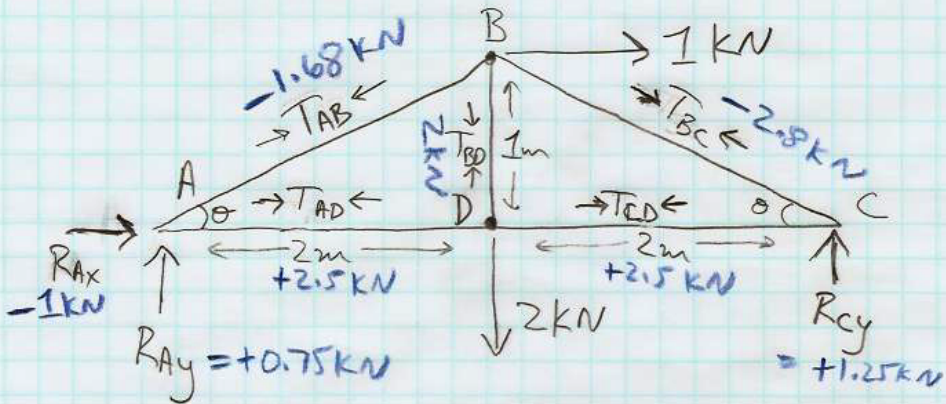 B
1 kN
-1.68 kN
→ TAB ←
→ TBC ←
-2.8 kN
2 kN
→ TBD ←
1m
A
θ
→ TAD ←
D
→ TCD ←
θ
C
2m
2m
RAx
-1 kN
+2.5 kN
+2.5 kN
2 kN
RAy = +0.75 kN
RCy
= +1.25 kN